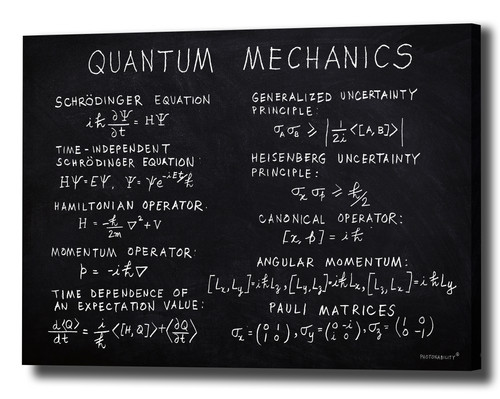 QUANTUM MECHANICS
SCHRÖDINGER EQUATION
iℏ ∂Ψ/∂t = HΨ
TIME-INDEPENDENT
SCHRÖDINGER EQUATION:
HΨ=EΨ, Ψ=ψe^(-iEt/ℏ)
HAMILTONIAN OPERATOR:
H = -ℏ/2m ∇²+V
MOMENTUM OPERATOR:
p = -iℏ∇
TIME DEPENDENCE OF
AN EXPECTATION VALUE:
d⟨Q⟩/dt = i/ℏ ⟨[H,Q]⟩+⟨∂Q/∂t⟩
GENERALIZED UNCERTAINTY
PRINCIPLE:
σ_A σ_B ⩾ |1/2i ⟨[A,B]⟩|
HEISENBERG UNCERTAINTY
PRINCIPLE:
σ_x σ_p ⩾ ℏ/2
CANONICAL OPERATOR:
[x, p] = iℏ
ANGULAR MOMENTUM:
[Lx, Ly]=iℏLz, [Ly, Lz]=iℏLx, [Lz, Lx]=iℏLy
PAULI MATRICES
σx=(0 1; 1 0), σy=(0 -i; i 0), σz=(1 0; 0 -1)